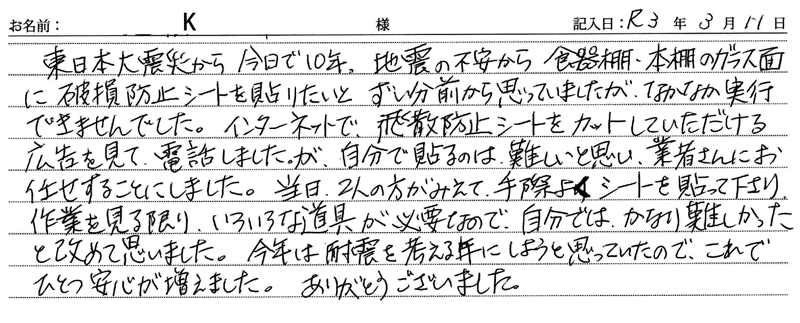 お名前： K 様 記入日：R3 年 3 月 11 日
東日本大震災から 今日で10年。地震の不安から 食器棚・本棚のガラス面
に 破損防止シートを貼りたいと ずい分前から思っていましたが、なかなか実行
できませんでした。インターネットで、飛散防止シートをカットしていただける
広告を見て、電話しました。が、自分で貼るのは、難しいと思い、業者さんにお
任せすることにしました。当日、2人の方がみえて、手際よく シートを貼って下さり、
作業を見る限り、いろいろな道具が必要なので、自分では、かなり難しかった
と改めて思いました。今年は 耐震を考える年にしようと思っていたので、これで
ひとつ安心が増えました。ありがとうございました。